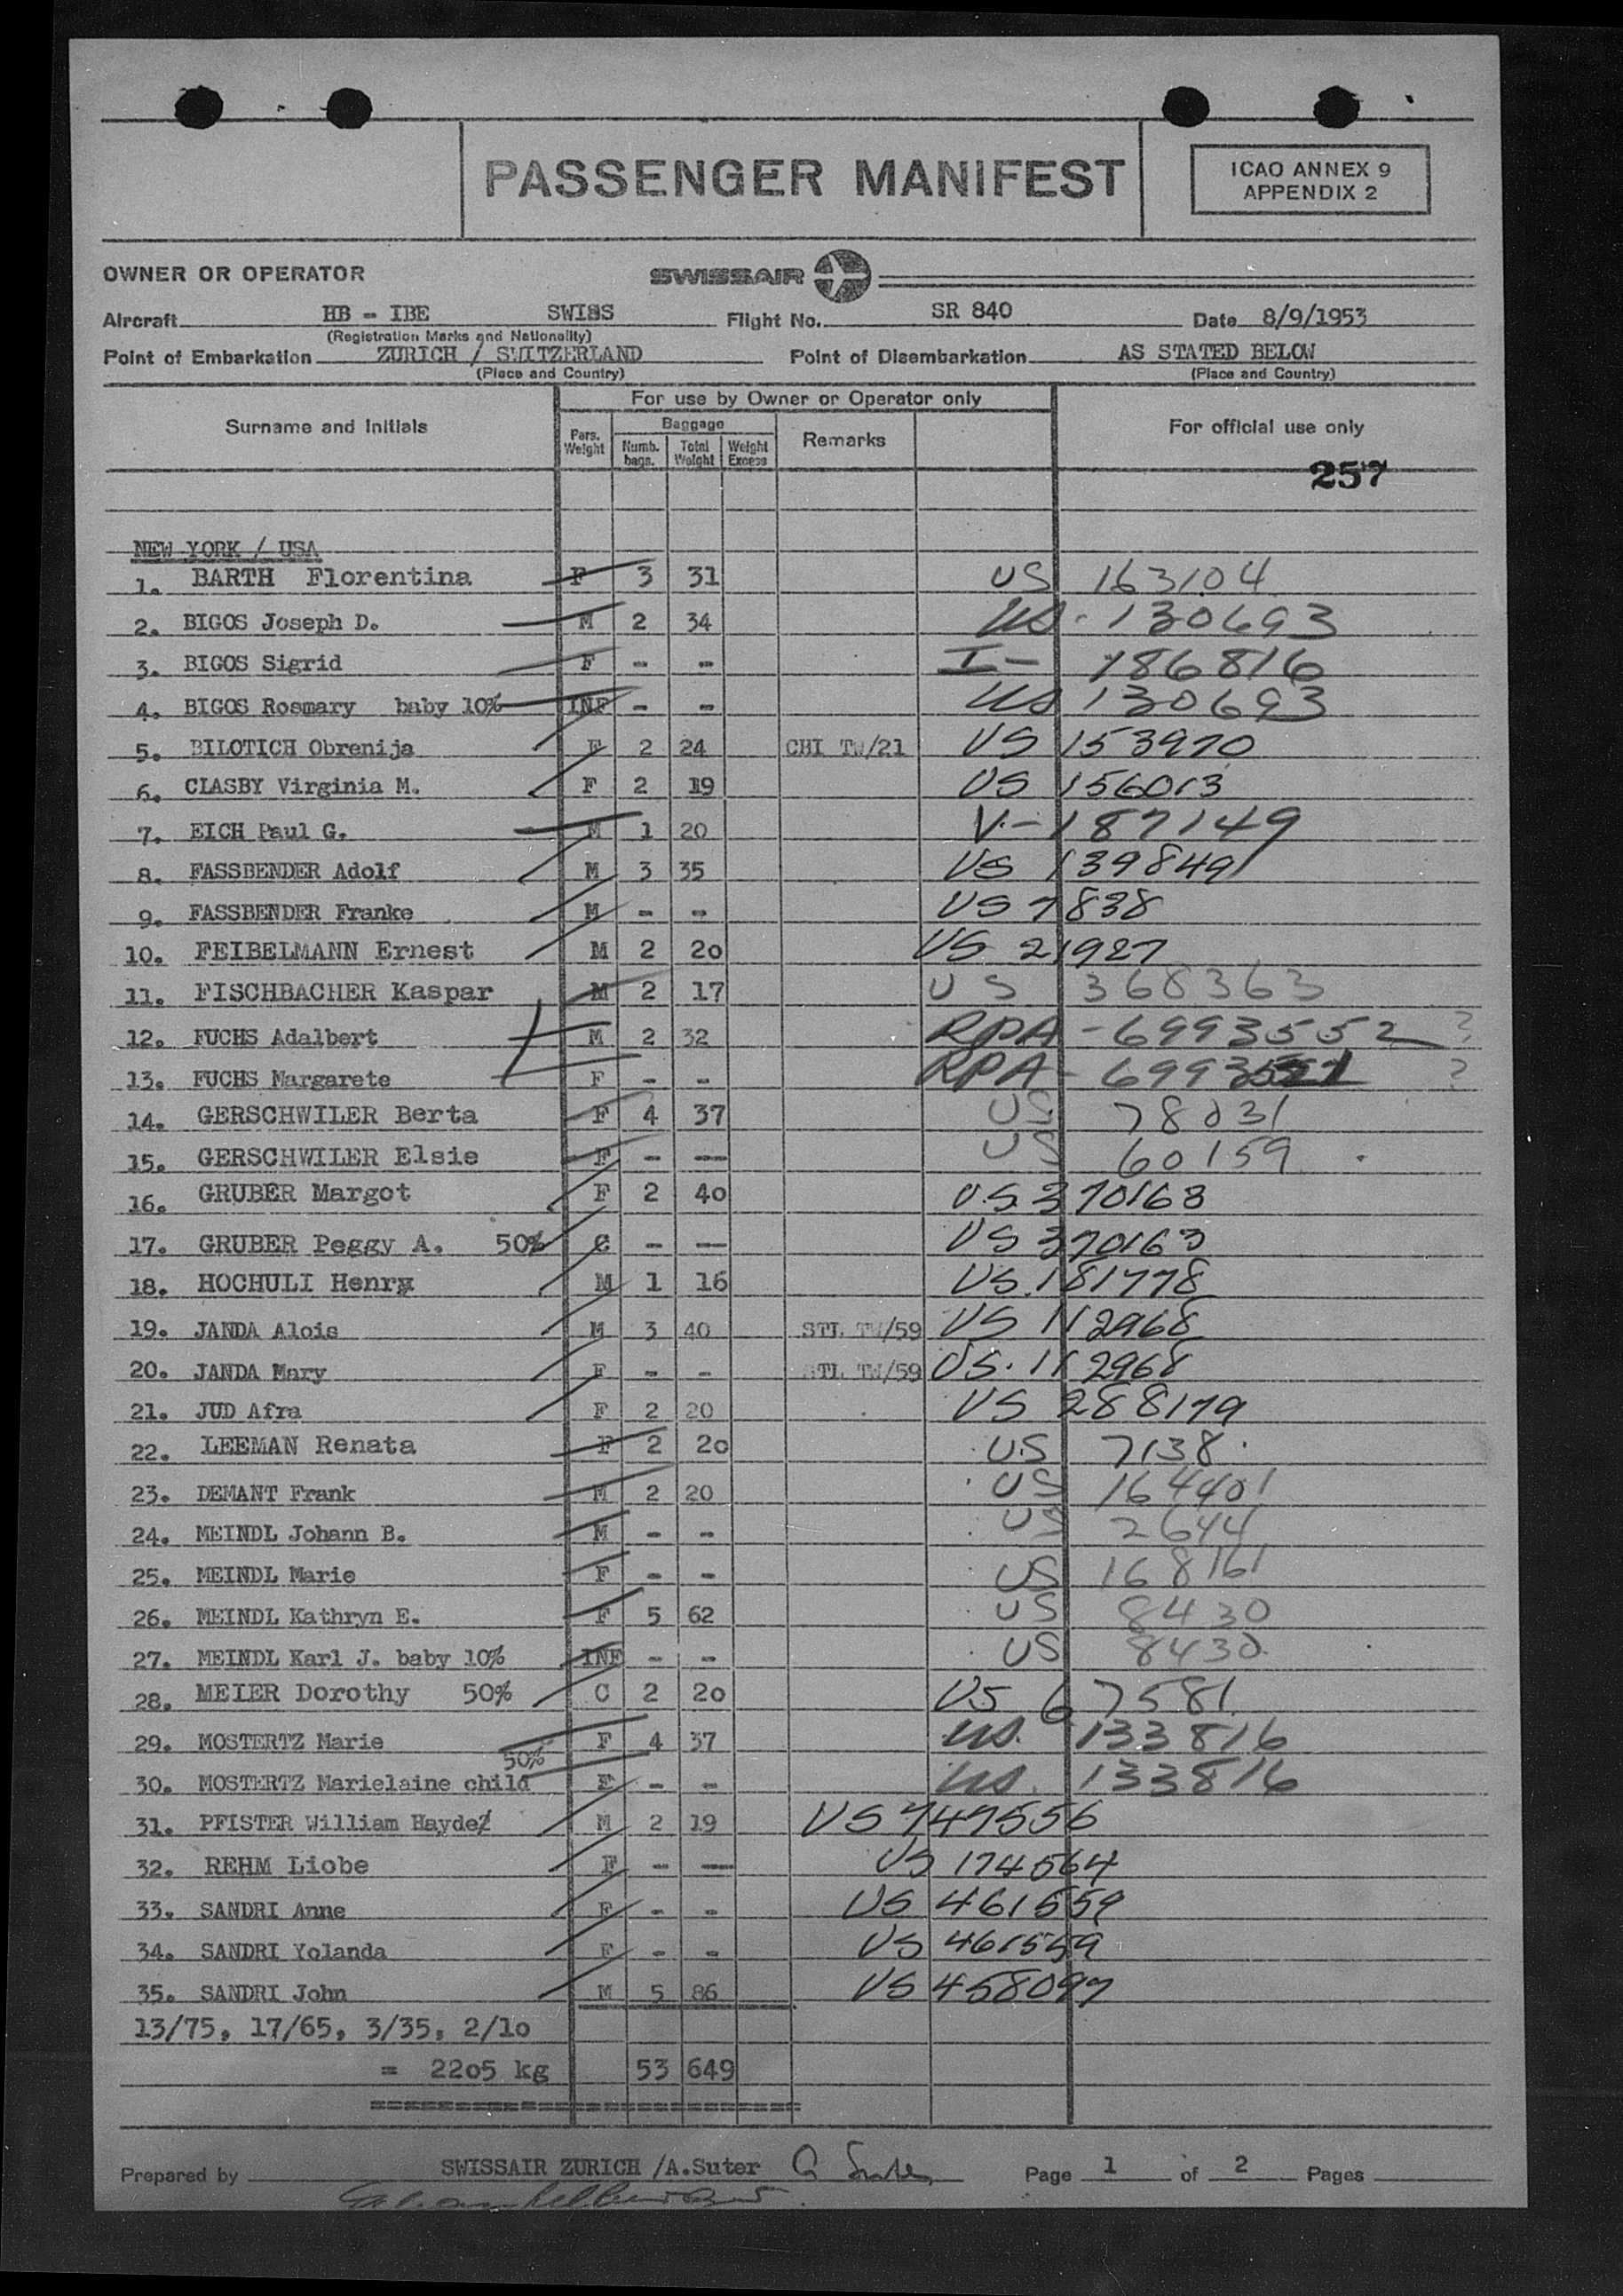 PASSENGER MANIFEST
ICAO ANNEX 9
APPENDIX 2
OWNER OR OPERATOR SWISSAIR
Aircraft HB - IBE SWISS Flight No. SR 840 Date 8/9/1953
(Registration Marks and Nationality)
Point of Embarkation ZURICH / SWITZERLAND Point of Disembarkation AS STATED BELOW
(Place and Country) (Place and Country)
For use by Owner or Operator only
Surname and Initials Pers. Weight Baggage Numb. bags. Total Weight Weight Excess Remarks For official use only
257
NEW YORK / USA
1. BARTH Florentina F 3 31 US 163104
2. BIGOS Joseph D. M 2 34 US. 130693
3. BIGOS Sigrid F - - I- 786816
4. BIGOS Rosmary baby 10% INF - - US 130693
5. BILOTICH Obrenija F 2 24 CHI TW/21 US 153970
6. CLASBY Virginia M. F 2 19 US 156013
7. EICH Paul G. M 1 20 V-187149
8. FASSBENDER Adolf M 3 35 US 139849
9. FASSBENDER Franke M - - US 7838
10. FEIBELMANN Ernest M 2 20 US 21927
11. FISCHBACHER Kaspar M 2 17 US 368363
12. FUCHS Adalbert M 2 32 RPA - 6993552 ?
13. FUCHS Margarete F - - RPA - ?
14. GERSCHWILER Berta F 4 37 US 78031
15. GERSCHWILER Elsie F - - US 60159
16. GRUBER Margot F 2 40 US 370163
17. GRUBER Peggy A. 50% C - - US 370163
18. HOCHULI Henry M 1 16 US.181778
19. JANDA Alois M 3 40 STL TW/59 US 112968
20. JANDA Mary F - - STL TW/59 US. 112968
21. JUD Afra F 2 20 US 288179
22. LEEMAN Renata F 2 20 US 7138
23. DEMANT Frank M 2 20 US 164401
24. MEINDL Johann B. M - - US 2644
25. MEINDL Marie F - - US 168161
26. MEINDL Kathryn E. F 5 62 US 8430
27. MEINDL Karl J. baby 10% INF - - US 8430
28. MEIER Dorothy 50% C 2 20 US 67581
29. MOSTERTZ Marie F 4 37 US. 133816
50%
30. MOSTERTZ Marielaine child F - - US. 133816
31. PFISTER William Hayde M 2 19 US 747556
32. REHM Liobe F - - US 174564
33. SANDRI Anne F - - US 461559
34. SANDRI Yolanda F - - US 461559
35. SANDRI John M 5 86 US 458097
13/75, 17/65, 3/35, 2/10
= 2205 kg 53 649
=========================
Prepared by SWISSAIR ZURICH /A.Suter Page 1 of 2 Pages